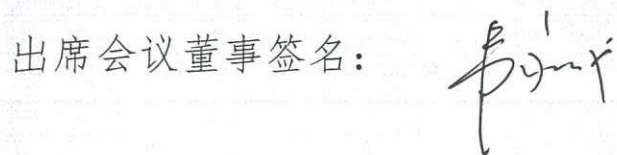 出席会议董事签名：